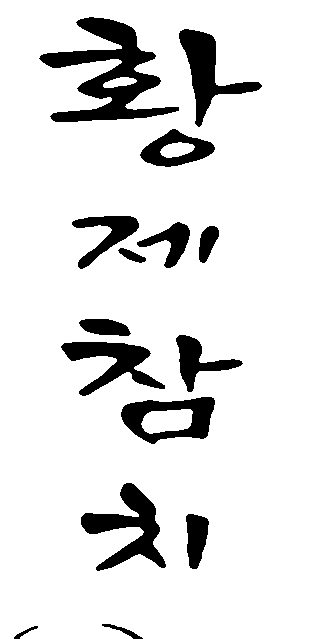 황
제
참
치